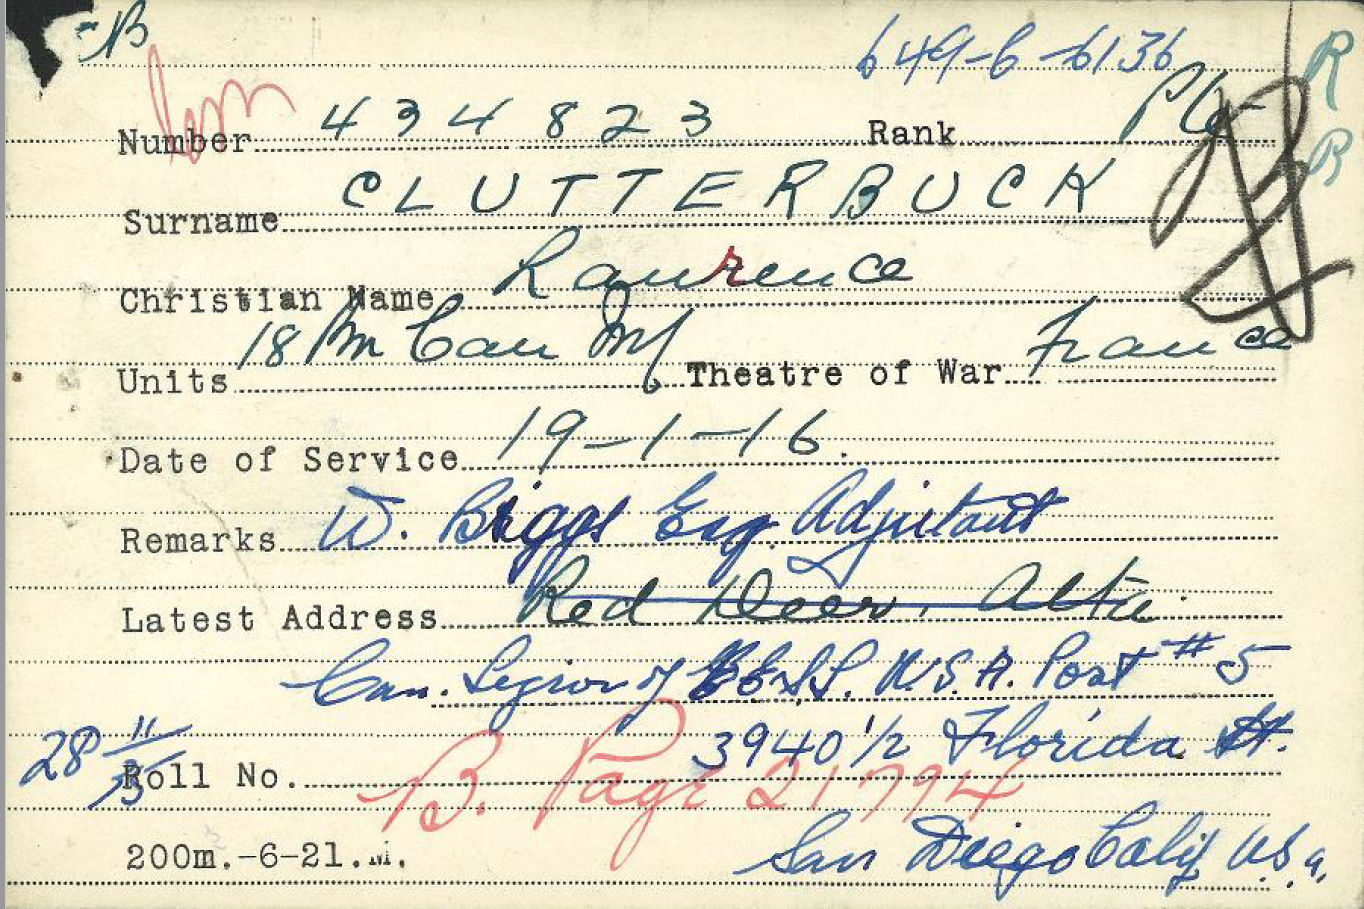 B
649-6-6136
Number 434823 Rank Pte
R
B
Surname CLUTTERBUCK
Christian Name Lawrence
Units 18 Bn Can Inf Theatre of War France
Date of Service 19-1-16.
Remarks W. Briggs Esq. Adjutant
Latest Address Red Deer. Alta.
Can. Legion of B.E.S.L. U.S.A. Post #5
3940 1/2 Florida St.
28 11
Roll No. B. Page 21794
200m.-6-21.M.
San Diego Calif U.S.a.